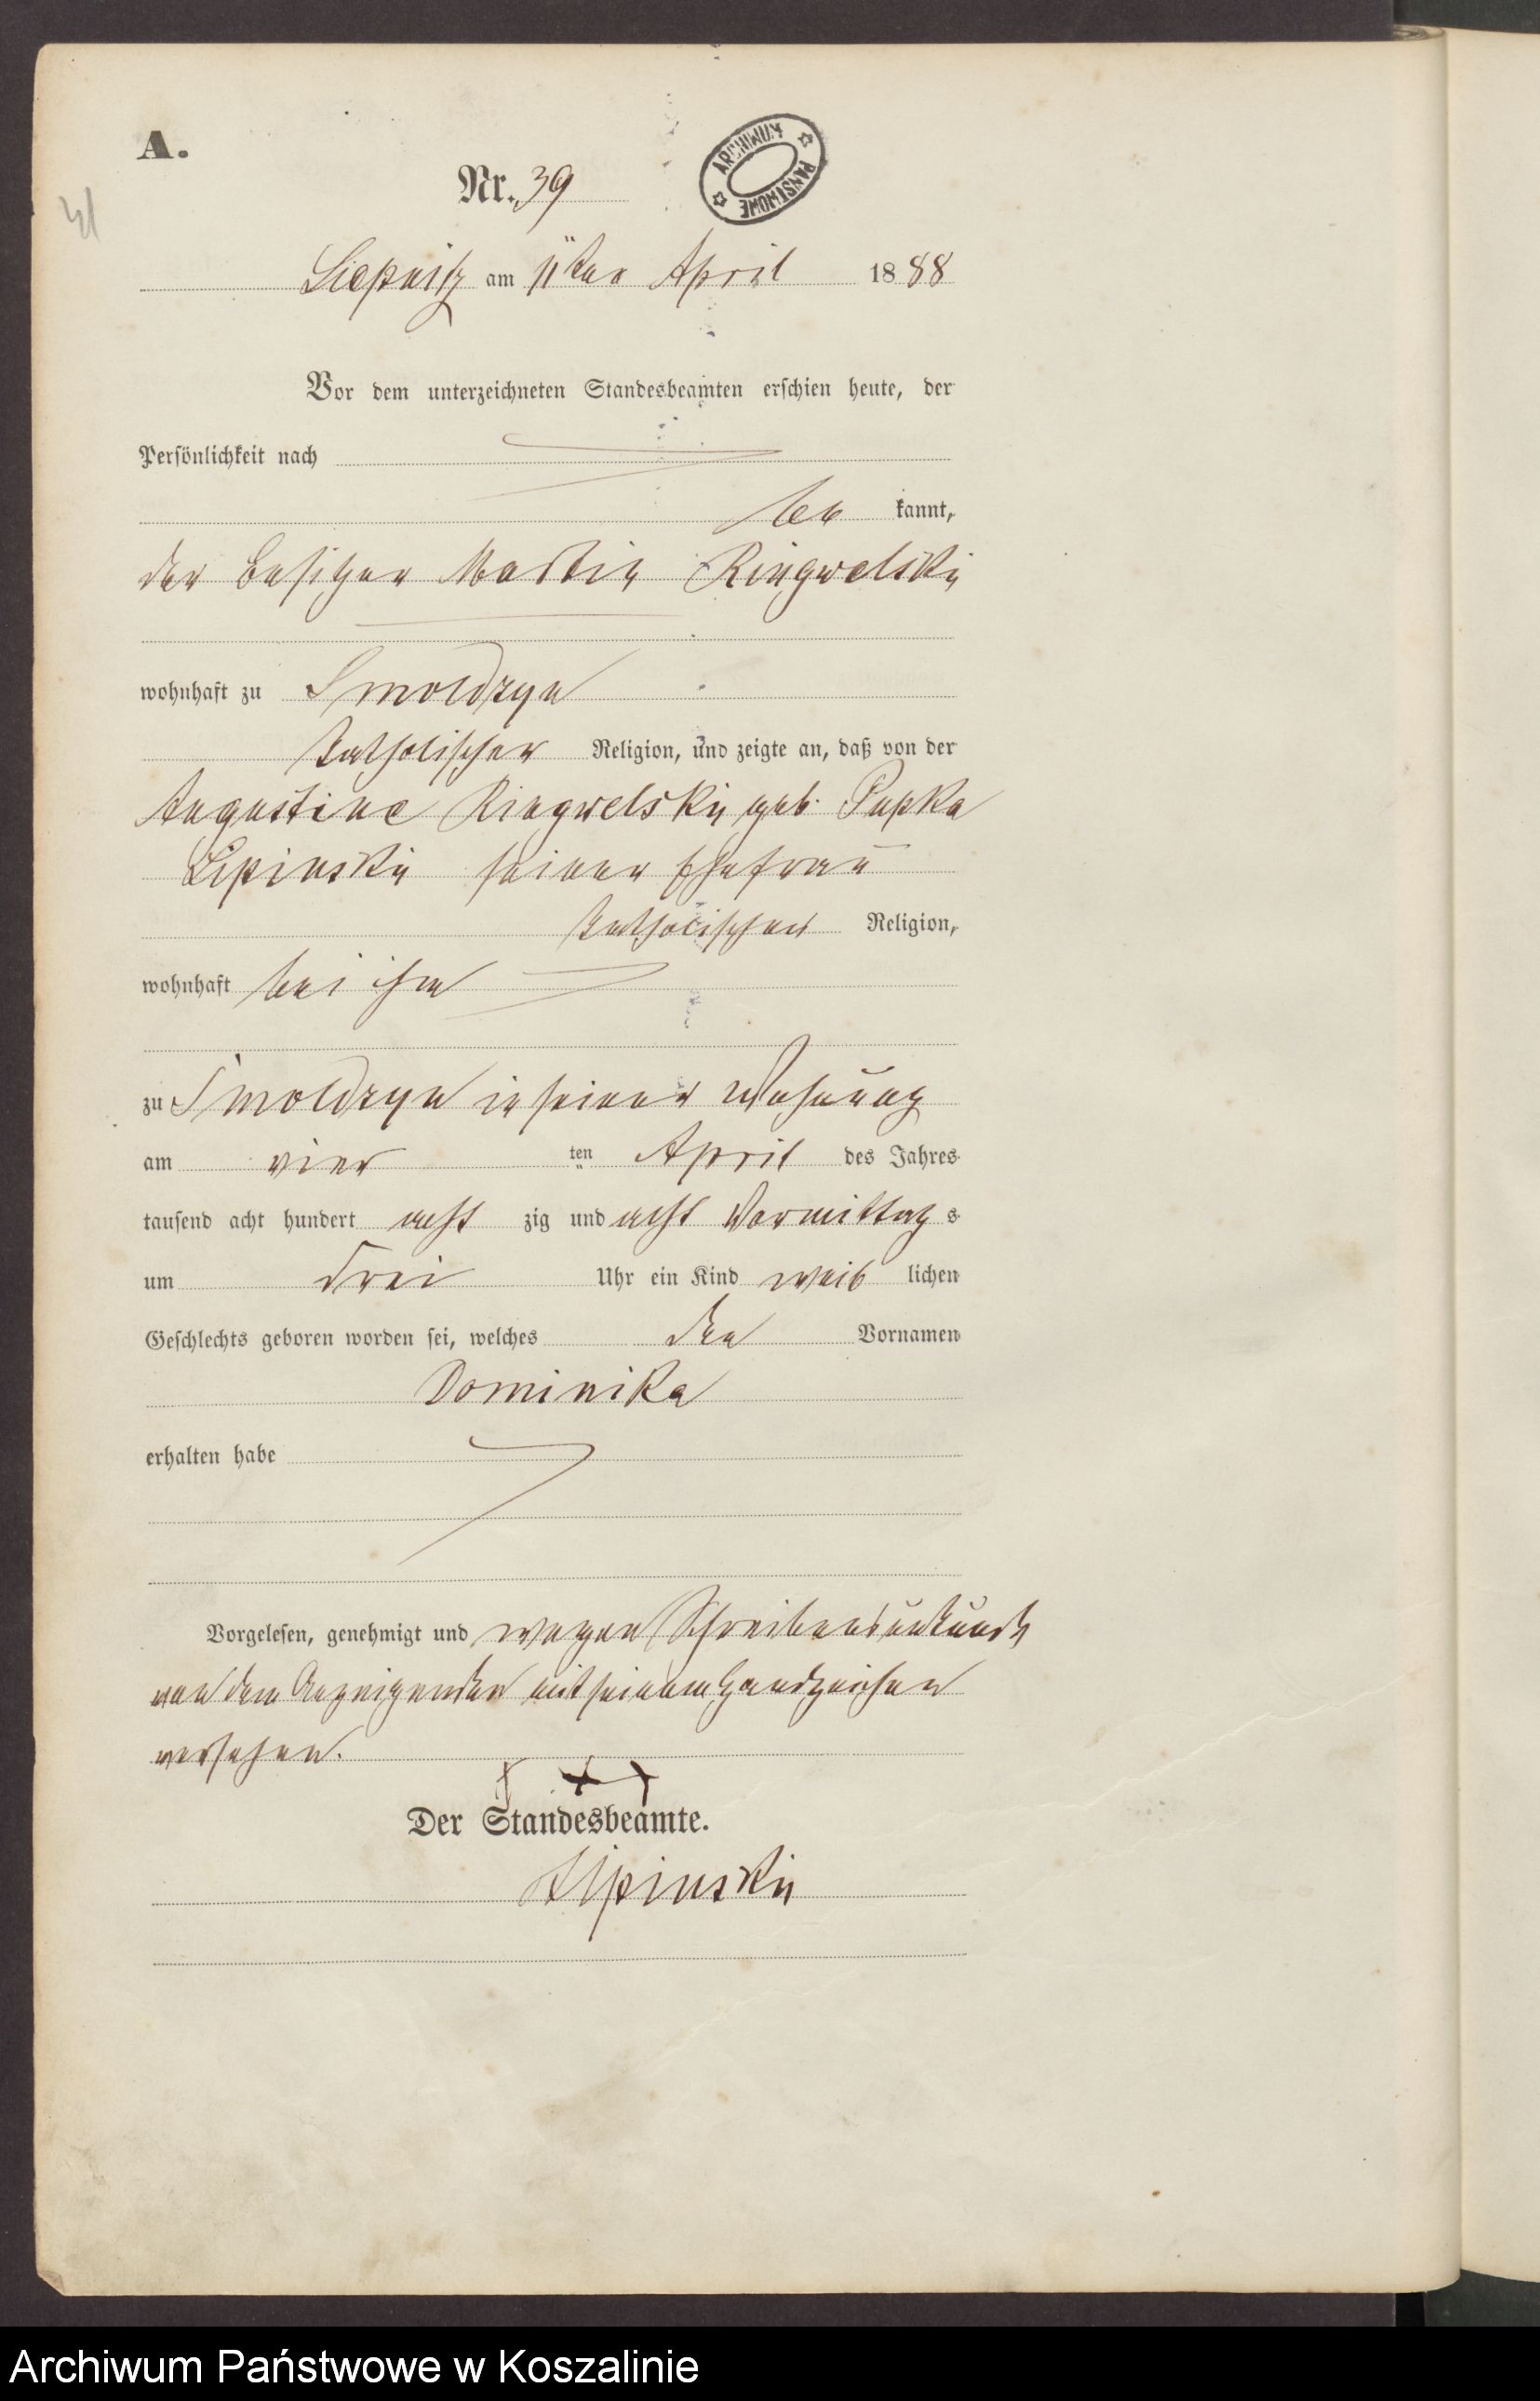 A.
41
Nr. 39
ARCHIWUM PAŃSTWOWE
Liepnitz am 11ten April 1888
Vor dem unterzeichneten Standesbeamten erschien heute, der
Persönlichkeit nach
be kannt,
der Besitzer Martin Ringwelski
wohnhaft zu Smoldzyn
katholischer Religion, und zeigte an, daß von der
Augustine Ringwelski geb. Pupka
Lipinski seiner Ehefrau
katholischer Religion,
wohnhaft bei ihm
zu Smoldzyn in seiner Wohnung
am vier ten April des Jahres
tausend acht hundert acht zig und acht Vormittag s
um drei Uhr ein Kind weib lichen
Geschlechts geboren worden sei, welches den Vornamen
Dominika
erhalten habe
Vorgelesen, genehmigt und wegen Schreibensunkunde
von dem Anzeigenden mit seinem Handzeichen
versehen.
+ + +
Der Standesbeamte.
Lipinski
Archiwum Państwowe w Koszalinie